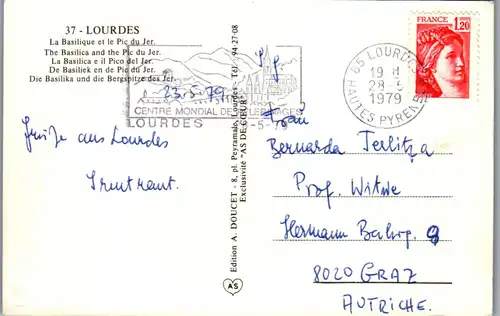 37 - LOURDES
La Basilique et le Pic du Jer.
The Basilica and the Pic du Jer.
La Basilica e il Pico del Jer.
De Basiliek en de Pic du Jer.
Die Basilika und die Bergspitze des Jer.
23.5.79
CENTRE MONDIAL DE PELERINAGES
LOURDES
-5-79
65 LOURDES
19 H
28-5
1979
HAUTES PYRENEES
FRANCE
1,20
Grüße aus Lourdes
Edition A. DOUCET - 8, pl. Peyramale, Lourdes - Tél. : 94-27-08
Exclusivité "AS DE CŒUR"
AS
Frau
Bernarda Terlitza
Prof. Witwe
Hermann Bahrg. 9
8020 GRAZ
AUTRICHE.